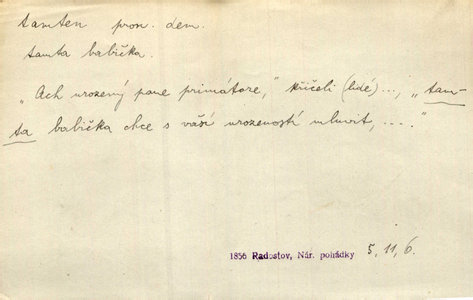 tamten pron. dem.
tamta babička.
„Ach urozený pane primátore,“ křičeli (lidé) ..., „tam-
ta babička chce s vaší urozeností mluvit, ....“
1856 Radostov, Nár. pohádky 5, 11, 6.